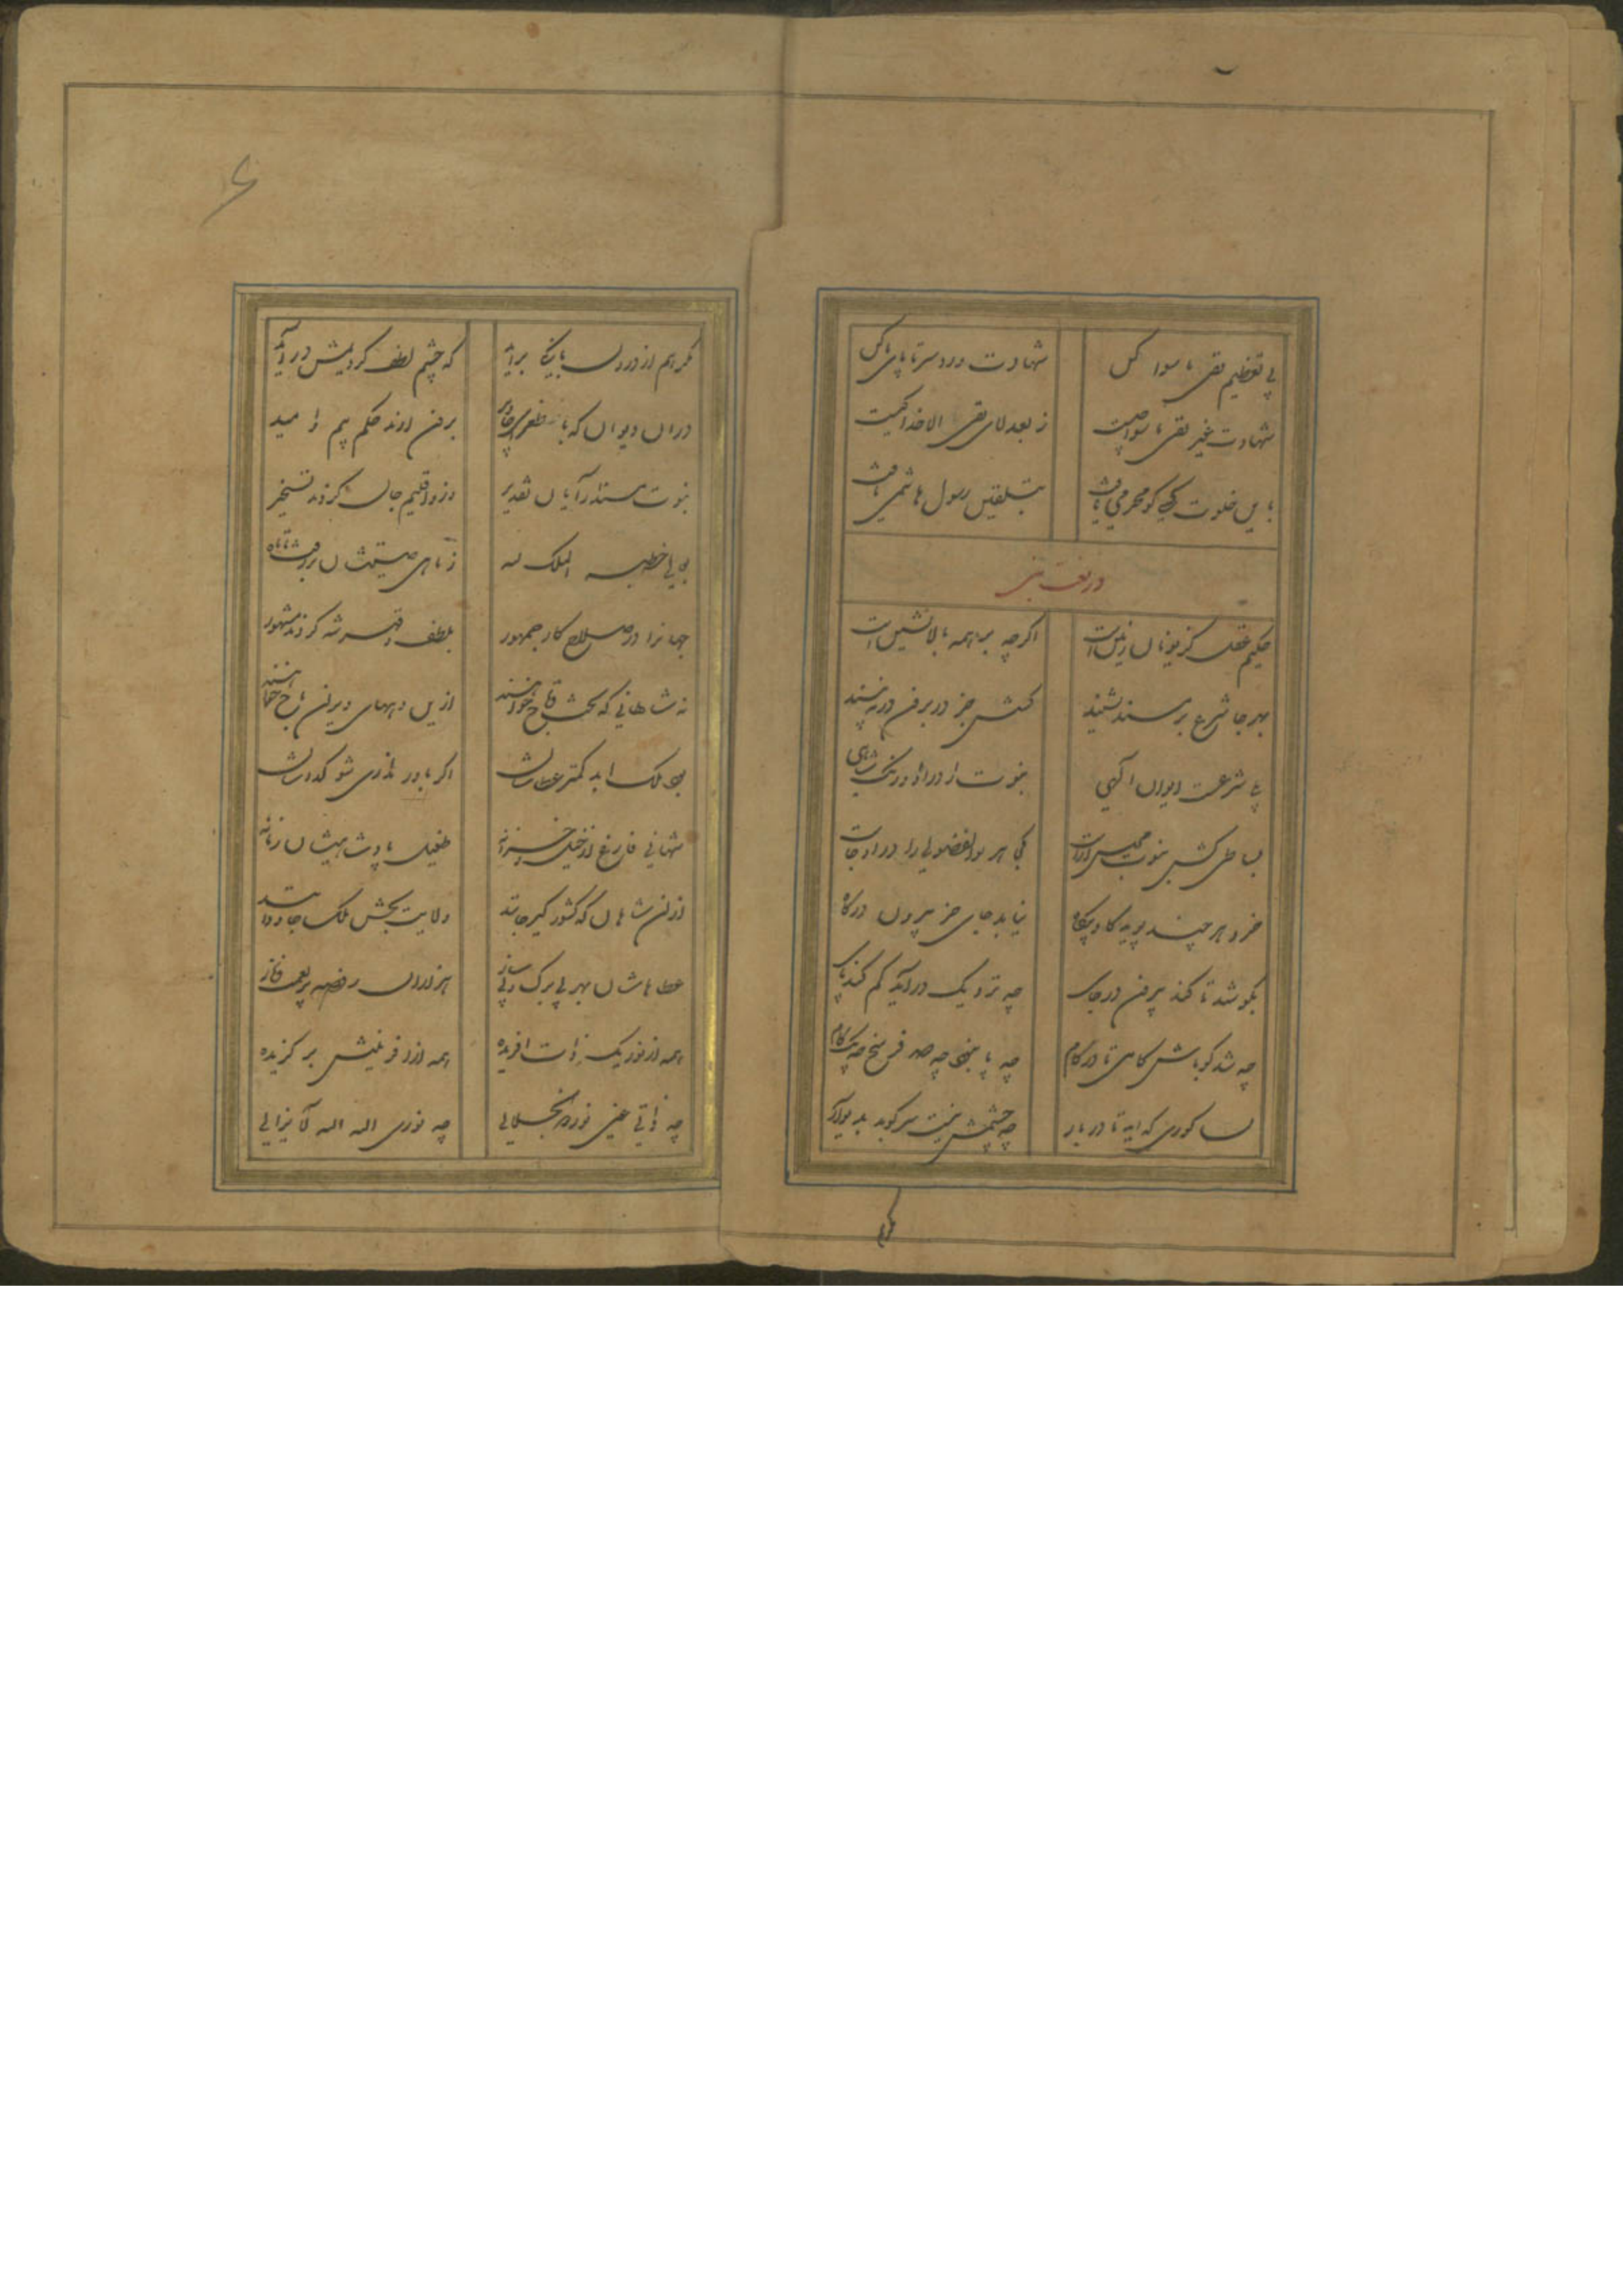 پی تعظیم نفی ماسوا کل شهادت دردسر تا پای با کل
شهادت غیر نفی ماسوا چیست ز بعد لای نفی الا خدا کیست
باین خلوت کسی کو محرمی یافت بتلقین رسول هاشمی یافت
در نعت نبی
حکیم عقل کز یونان زمین است اگرچه بر همه بالانشین است
بهر جا شرع بر مسند نشیند کسش جز در برون در نه بیند
بلی شرعست ایوان الهی نبوت اندر او اورنگ شاهی
بساطی کش نبوت مجلس آراست کجا هر بوالفضولی را در او جاست
خرد هر چند پوید گاه و بیگاه نیابد جای جز بیرون درگاه
بکوشد تا کند بیرون در جای چو نزدیک در آید گم کند پای
چه شد گو باش گامی تا در کام چو پا نبود چه صد فرسخ چه یک گام
بسا کوری که آید تا در بار چو چشمش نیست سر کوبد به دیوار
مگر هم از درون بانگی برآید که چشم لطف کردیمش درآید
دران دیوان که با طغرای جاوید برون ارند حکم بیم و امید
نبوت مسند آرایان تقدیر وزو اقلیم جان کردند تسخیر
الملک لله ز ماهی صیتشان بر رفت تا ماه
جهانرا در صلاح کار جمهور بلطف و قهر شه کردند مشهور
نه شاهانی که تخت و تاج خواهند ازین دههای ویران باج خواهند
ملک ابد کمتر عطاشان اگر باور نداری شو گداشان
شهانی فارغ از خیل و خزانه طفیل پادشاهیشان زمانه
ازان شاهان که کشور گیر جانند ولایت بخش ملک جاودانند
عطاهاشان بهر بی برگ و بی ساز هزاران روضه پر نعمت و ناز
همه از نور یک ذات افریده همه از آفرینش برگزیده
چه ذاتی عین نور ذوالجلالی چه نوری الله الله لایزالی